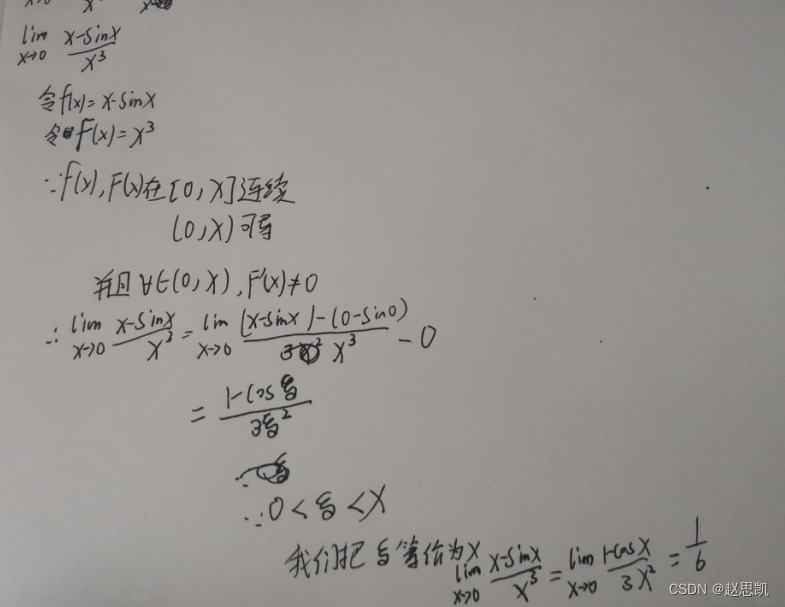 lim x→0 x-sinx / x³
令f(x)=x-sinx
令F(x)=x³
∵f(x),F(x)在[0,x]连续
(0,x)可导
并且∀∈(0,x),F'(x)≠0
∴ lim x→0 x-sinx / x³ = lim x→0 (x-sinx)-(0-sin0) / x³ - 0
= 1-cosξ / 3ξ²
∵0<ξ<x
我们把ξ等价为x
lim x→0 x-sinx / x³ = lim x→0 1-cosx / 3x² = 1/6
CSDN @赵思凯